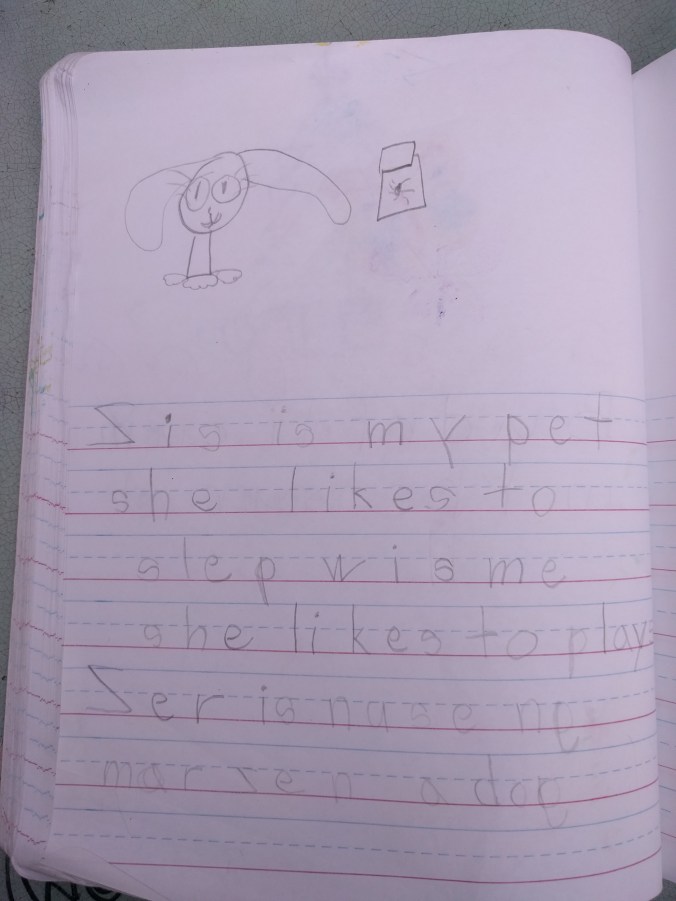 Sis is my pet
she likes to
slep wis me
she likes to play
Ser is nase ng
mar sen a dog